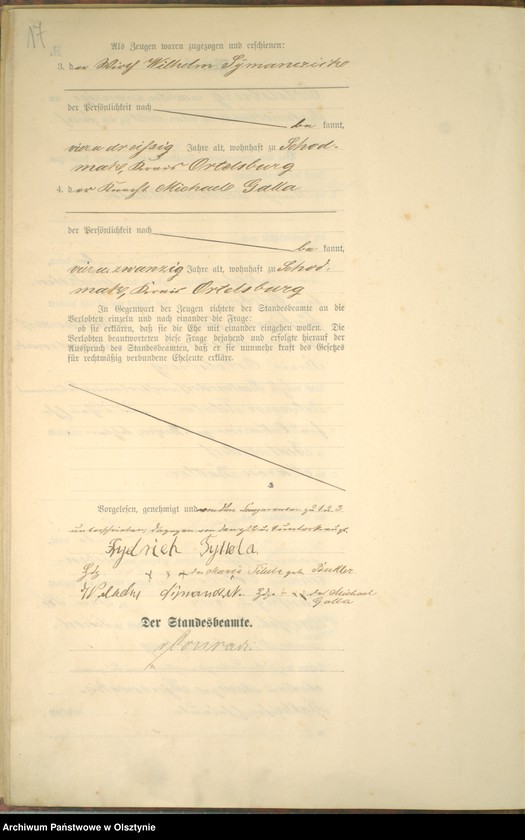 17
Als Zeugen waren zugezogen und erschienen:
3. der Wirth Wilhelm Symanzick
der Persönlichkeit nach
be kannt,
vierundreissig Jahre alt, wohnhaft zu Schod-
mak, Kreis Ortelsburg
4. der Knecht Michael Galla
der Persönlichkeit nach
be kannt,
vier u. zwanzig Jahre alt, wohnhaft zu Schod-
mak, Kreis Ortelsburg
In Gegenwart der Zeugen richtete der Standesbeamte an die
Verlobten einzeln und nach einander die Frage:
ob sie erklären, daß sie die Ehe mit einander eingehen wollen. Die
Verlobten beantworteten diese Frage bejahend und erfolgte hierauf der
Ausspruch des Standesbeamten, daß er sie nunmehr kraft des Gesetzes
für rechtmäßig verbundene Eheleute erkläre.
Vorgelesen, genehmigt und von den Comparenten zu 1 u. 3
unterschrieben, dagegen von
Frydrich Tyllla
Hdz x x x der Maria geb.
Wilhelm Simandzik Hdz x x x des Michael
Galla
Der Standesbeamte.
Conrad
Archiwum Państwowe w Olsztynie